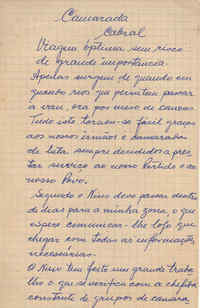 Camarada
Cabral
Viagem óptima sem risco
de grande importância.
Apenas surgem de quando em
quando rios que permitem passar
a vau, ora por meio de canoas.
Tudo isto torna-se fácil graças
aos nossos irmãos e camaradas
de luta sempre decididos a pres
tar serviço ao nosso Partido e ao
nosso Povo.
Segundo o Nino devo passar dentro
de dias para a minha zona, o que
espero comunicar-lhe logo que
chegar com todas as informações
necessárias.
O Nino tem feito um grande traba
lho o que se verifica com a chegada
constante de grupos de camara